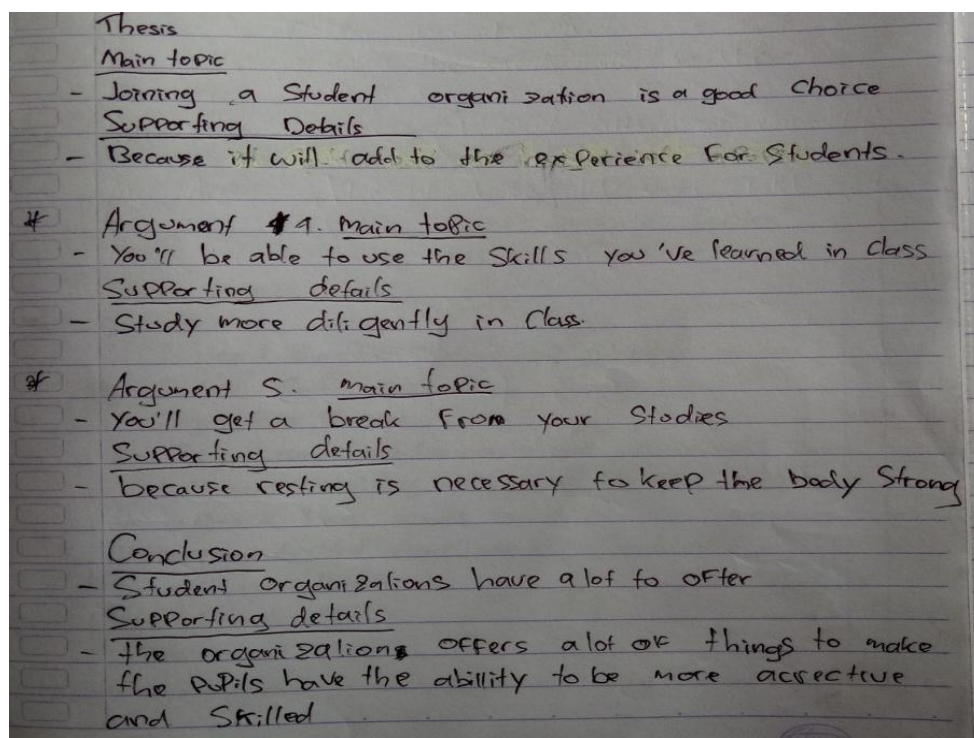 Thesis
Main topic
- Joining a Student organization is a good choice
Supporting Details
- Because it will add to the experience for students.
* Argument 4. main topic
- You'll be able to use the skills you've learned in class
Supporting details
- Study more diligently in class.
* Argument 5. main topic
- You'll get a break from your studies
Supporting details
- because resting is necessary to keep the body strong
Conclusion
- Student organizations have a lot to offer
Supporting details
- the organizations offers a lot of things to make
the pupils have the ability to be more
and skilled